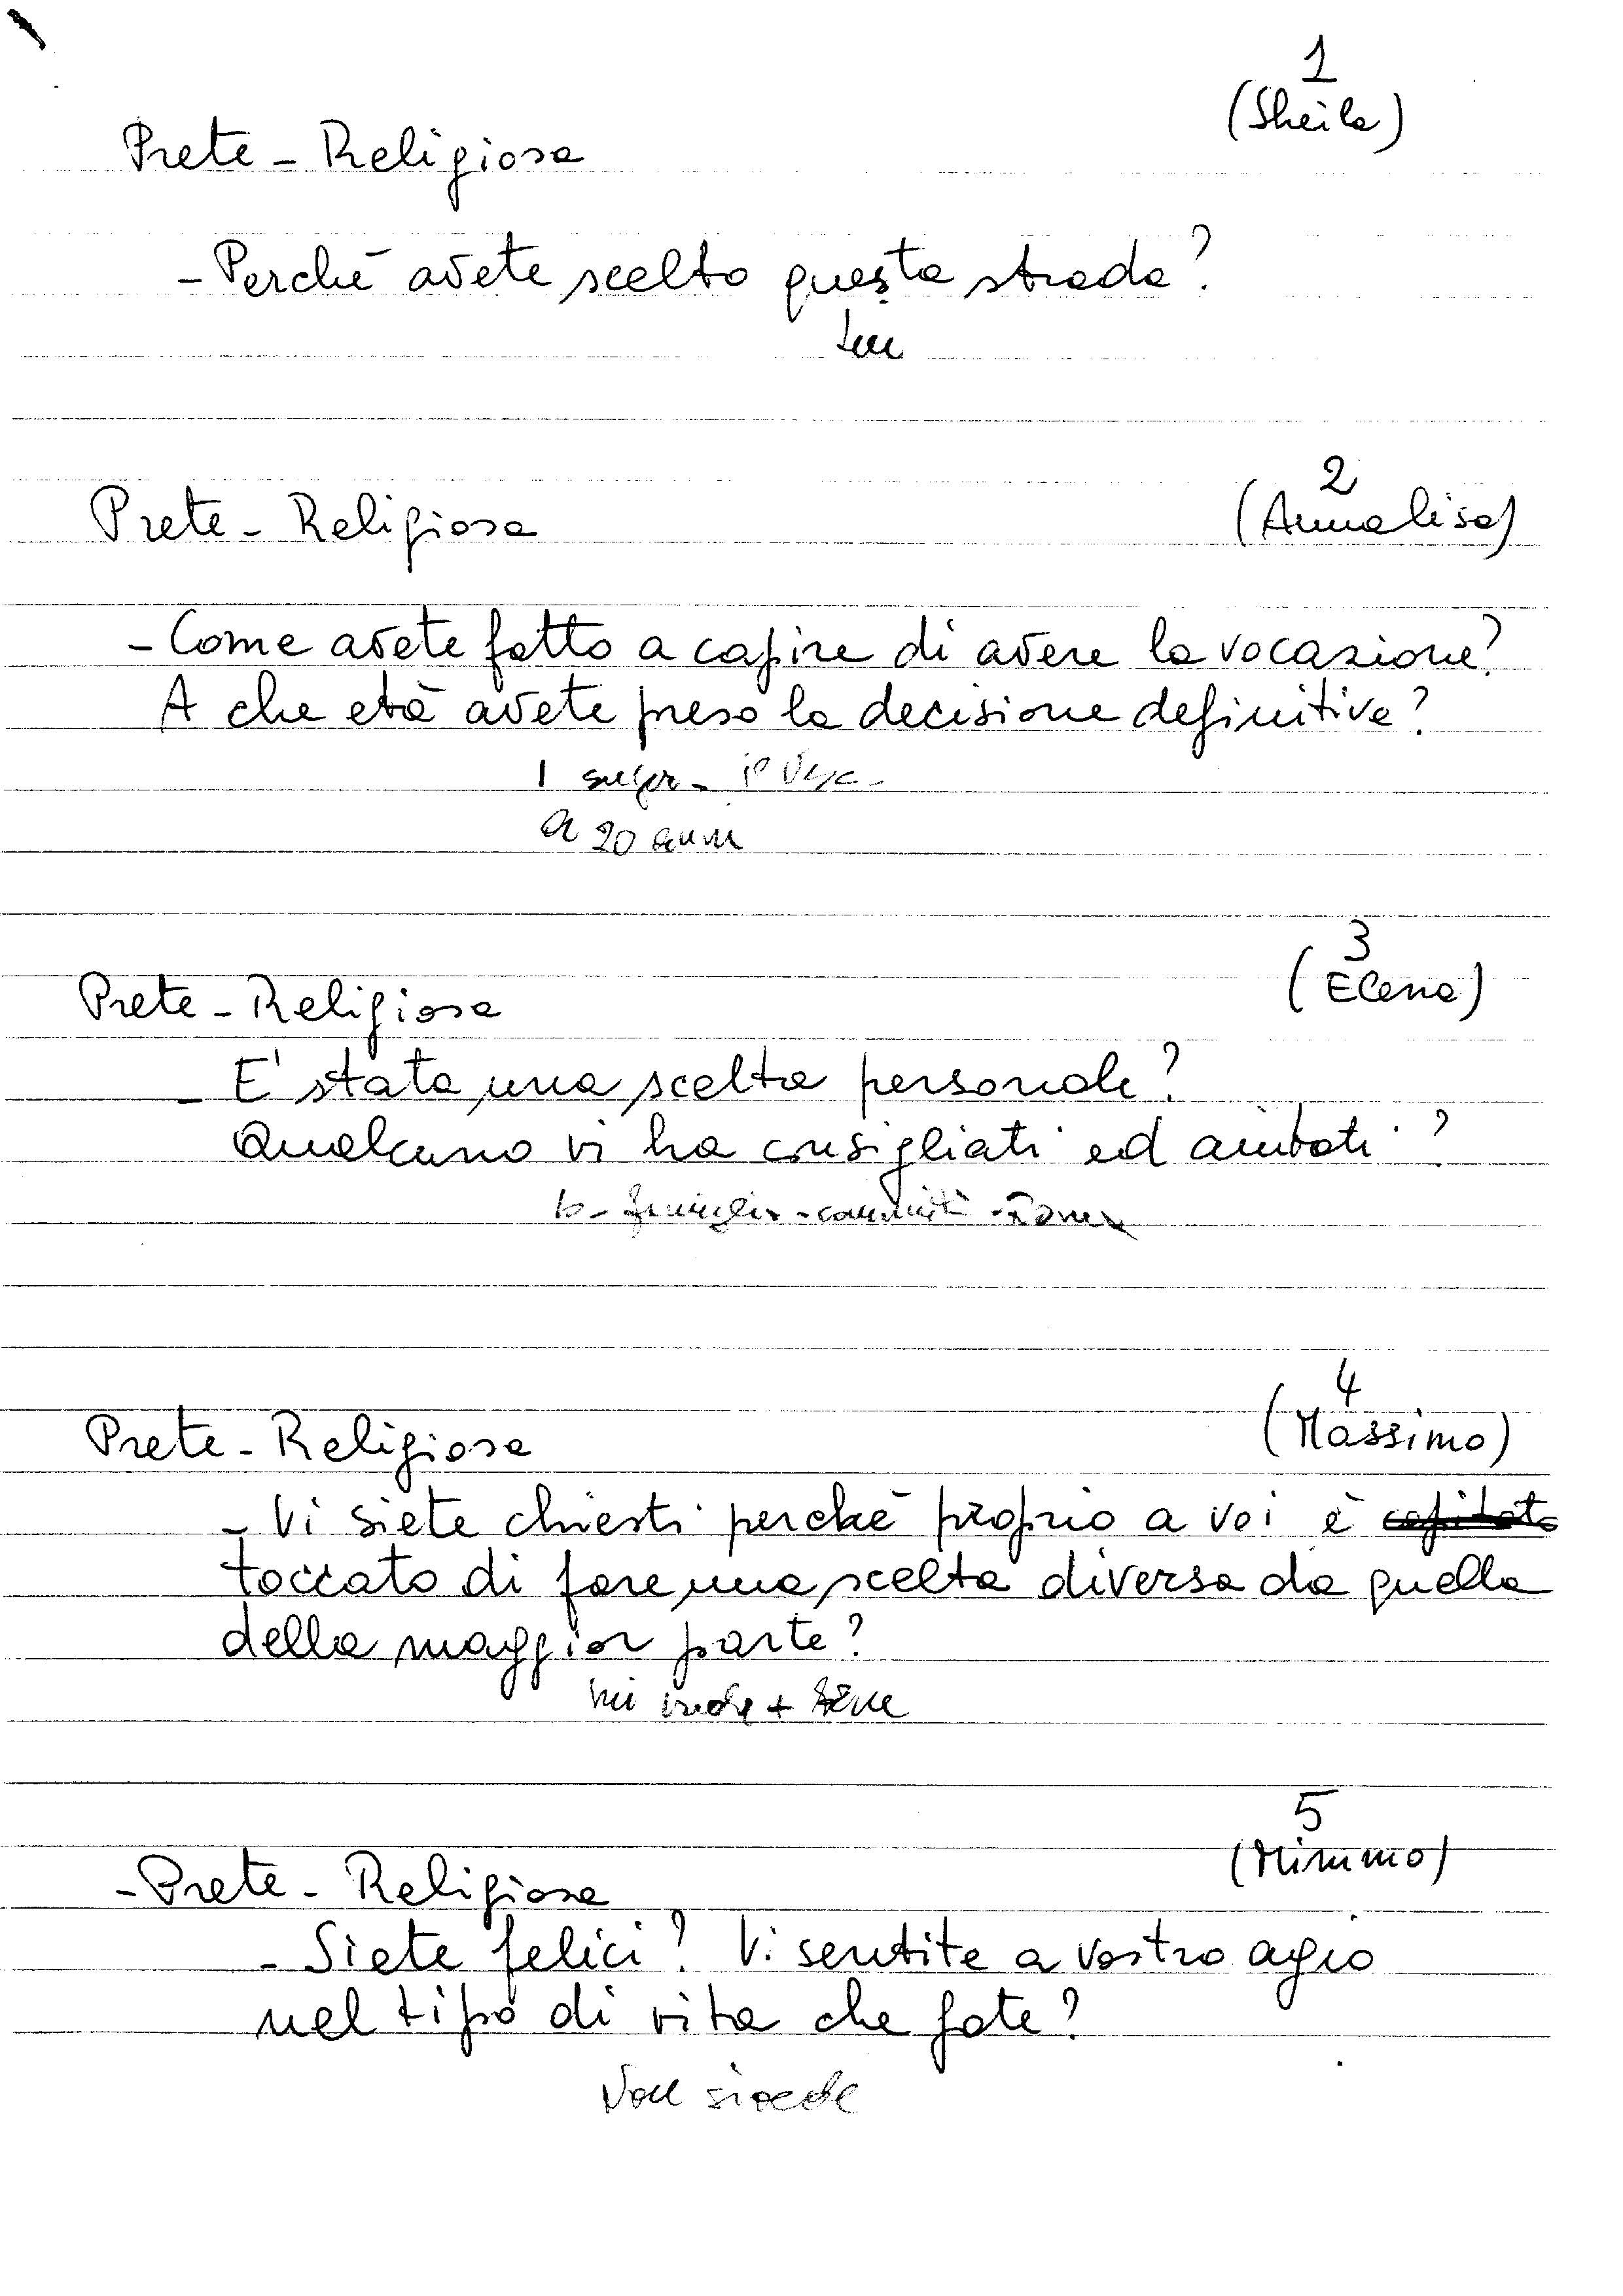 1
(Sheila)
Prete - Religiosa
- Perchè avete scelto questa strada?
2
Prete - Religiosa (Annalisa)
- Come avete fatto a capire di avere la vocazione?
A che età avete preso la decisione definitiva?
1
a 20 anni
3
Prete - Religiosa (Elena)
- E' stata una scelta personale?
Qualcuno vi ha consigliati ed aiutati?
io - famiglia - comunità -
4
Prete - Religiosa (Massimo)
- Vi siete chiesti perchè proprio a voi è capitato
toccato di fare una scelta diversa da quella
della maggior parte?
5
(Mimmo)
- Prete - Religiosa
- Siete felici? Vi sentite a vostro agio
nel tipo di vita che fate?
Non si vede